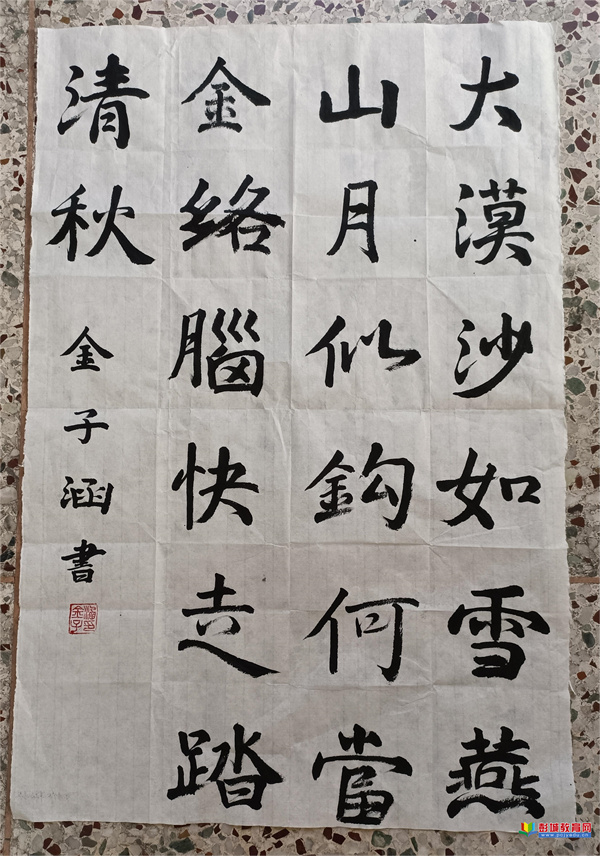 大漠沙如雪燕
山月似鈎何當
金络腦快走踏
清秋
金子涵書
彭城教育网